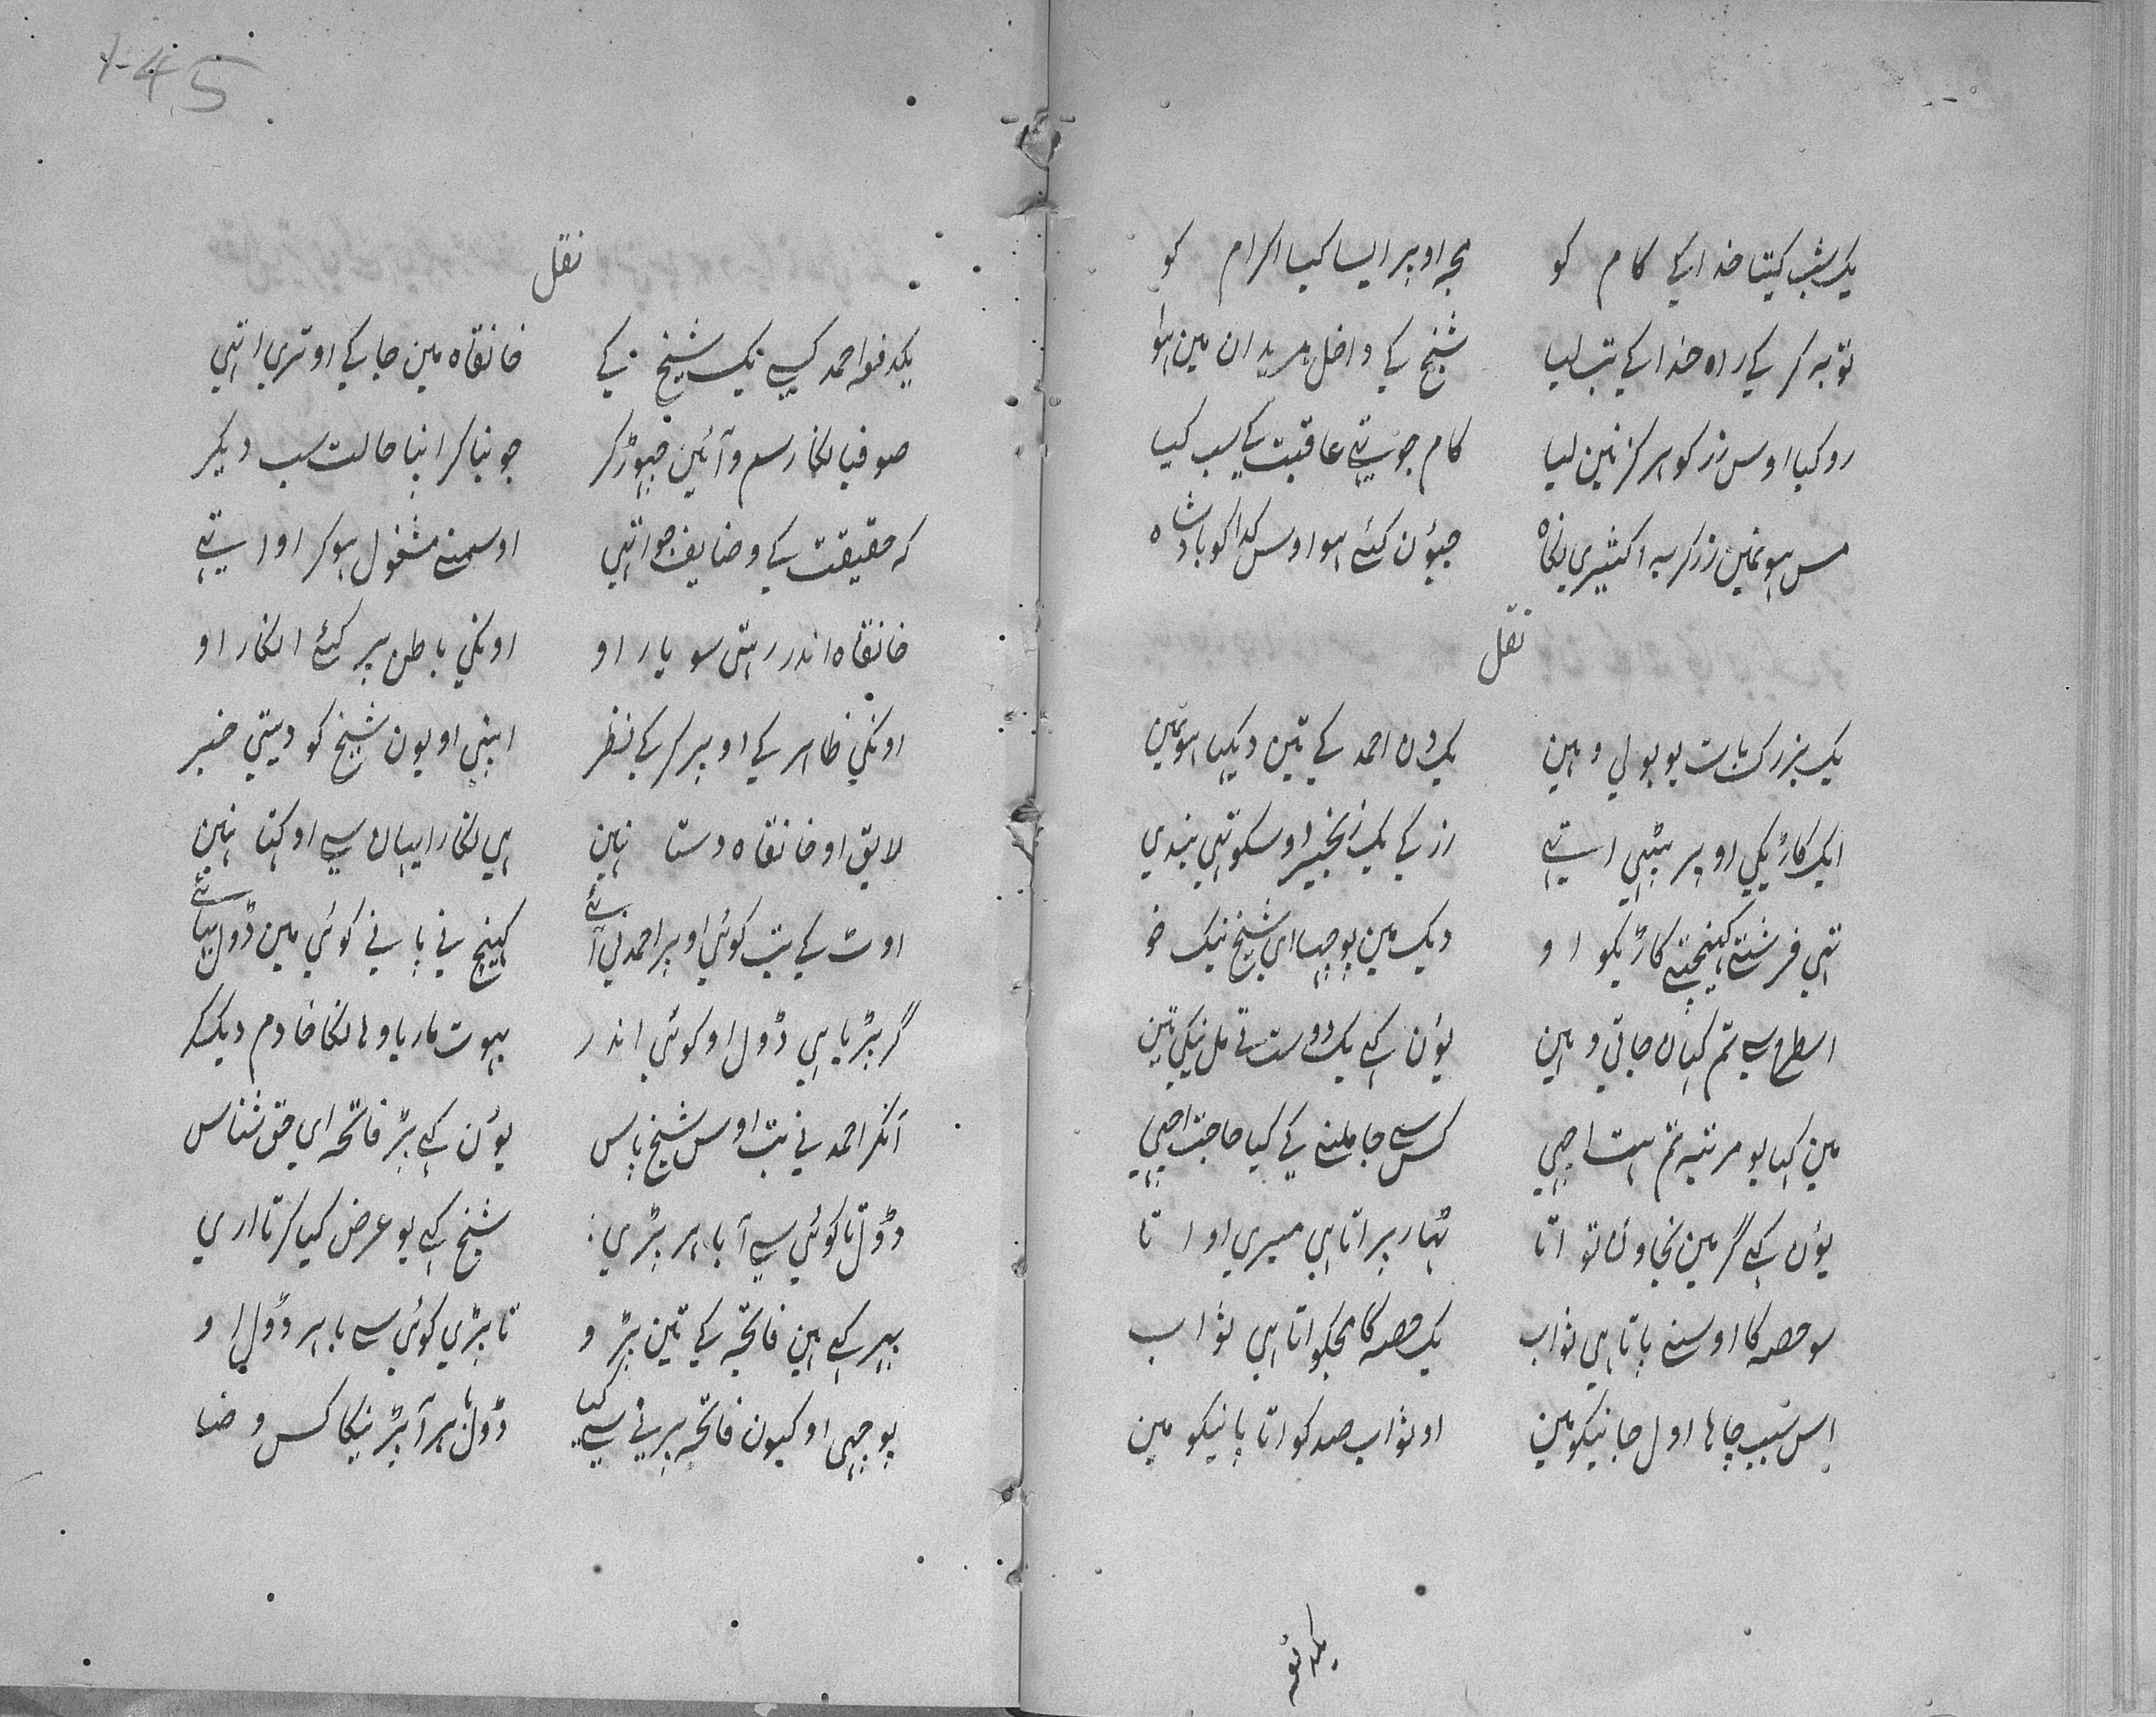 یک شب کیتا خدا کی کام کو    مجہ اوپر ایسا کیا اکرام کو
توبہ کر کی راہ خدا کی تب لیا    شیخ کی داخل مریدان مین ہوا
رو کیا اوس زر کو ہرکز نین لیا    کام جو تہی عاقبت کی سب کیا
مس ہو نمین زر کریہ اکثیری نگاہ    جیوُن کئے ہوا اوس کدا کو بادشاہ
نقل
یک بزرک بات یو بولی وہین    یک دن احمد کی تین دیکہا ہونمین
ایک کاڑیکی اوپر بیٹہی اتہی    زر کی یک زنجیر اوسکو تہی بندی
تہی فرشتے کہینچتے کاڑیکو او    دیک مین پوچہا ای شیخ نیک خو
اسطرح سے تم کہان جاتی وہین    یوُن کہی یک دوست تی مل نیکی تین
مین کہا یو مرتبہ تم ہت اچہی    کس سے جا ملنے کی کیا حاجت اچہی
یوُن کہی گر مین نجاوٗن تو اتا    تہار پر اتا ہی میری او اتا
سو حصہ کا اوسنے پاتا ہی ثواب    یک حصہ کا مجکو اتا ہی ثواب
اس سبب چاہا اول جانیکو مین    او ثواب صد کو اتا پانیکو مین
یکدفعہ
45
نقل
یکدفعہ احمد کسی یک شیخ کی    خانقاہ مین جا کی اوتری اتہی
صوفیانکا رسم و آئین چہوڑ کر    جو بنا کر اپنا حالت سب دیکر
کہ حقیقت کی وضایف جو اتہی    اوسمنے مشغول ہوکر او اتہی
خانقاہ اندر رہتی سو یار او    اونکی باطن پر کیٔے انکار او
اونکی ظاہر کی اوپر کر کی نظر    اپنی او یون شیخ کو دیتی خبر
لایق او خانقاہ دستا نہین    ہی نکارا یہان سی او کتا نہین
اوٹ کی تب کوئی اوپر احمد نی آئے    کہینچ نی پانی کوئی مین ڈول بہائے
گر پڑیا ہی ڈول او کوئی اندر    بہوت ماریا وہانکا خادم دیک کر
آنکر احمد نی تب اوس شیخ پاس    یوُن کہی پڑ فاتحہ ای حق شناس
ڈول تا کوئی سے آ باہر پڑی    شیخ کہی یو عرض کیا کرتا اری
پہر کہی ہین فاتحہ کی تین پڑو    تا پڑی کوئی سے باہر ڈول او
پوچہی او کیون فاتحہ پڑنی سے کیا    ڈول باہر آ پڑنیکا کس وضا